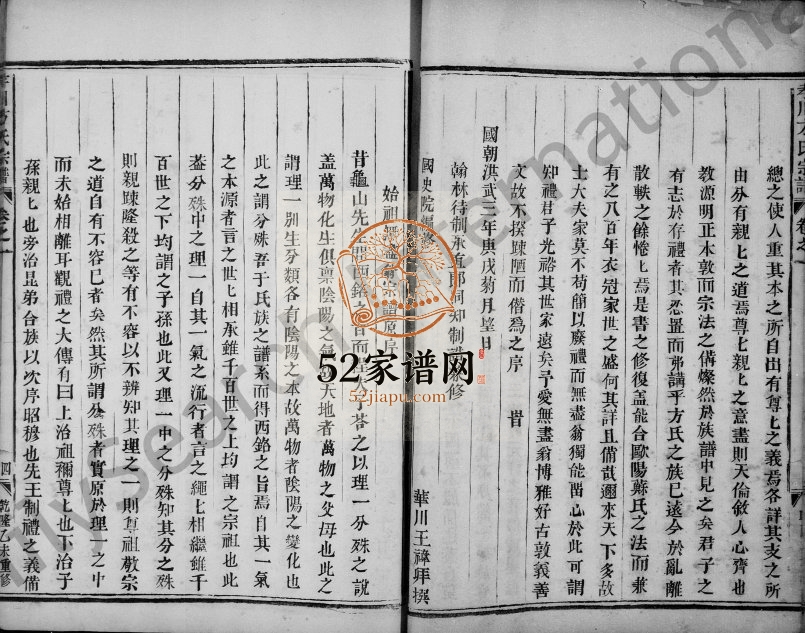 總之使人重其本之所自出有尊之之義焉各詳其支之所
由分有親上之道焉尊上親上之意盡則天倫敘人心齊也
教源明正本敦而宗法之僃燦然於族譜中見之矣君子之
有志於存禮者其忍置而弗講乎方氏之族已遠今於亂離
散軼之餘惓上焉是書之修復盖能合歐陽蘇氏之法而兼
有之八百年衣冠家世之盛何其詳且僃哉邇來天下多故
士大夫家莫不苟簡以廢禮而無盡翁獨能畄心於此可謂
知禮君子光裕其世家遠矣予愛無盡翁博雅好古敦義善
文故不揆踈陋而僣為之序 旹
國朝洪武三年庚戌菊月望日
翰林待制承 郎同知制 修
國史院編修 華川王禕拜撰
始祖無 宗譜原序
昔龜山先生 西銘 言而 子荅之以理一分殊之說
盖萬物化生俱稟陰陽之氣 天地者萬物之父母也此之
謂理一别生分類各有陰陽之本故萬物者陰陽之變化也
此之謂分殊吾于氏族之譜系而得西銘之旨焉自其一氣
之本源者言之世上相承雖千百世之上均謂之宗祖也此
葢分殊中之理一自其一氣之流行者言之繩上相繼雖千
百世之下均謂之子孫也此又理一中之分殊知其分之殊
則親踈隆殺之等有不容以不辨知其理之一則尊祖敬宗
之道自有不容已者矣然其所謂分殊者實原於理一之中
而未始相離耳觀禮之大傳有曰上治祖禰尊上也下治子
孫親上也旁治昆弟合族以次序昭穆也先王制禮之義僃
方氏宗譜
卷之一
四
乾隆乙未重修
52家谱网
52jiapu.com
mysearch
international